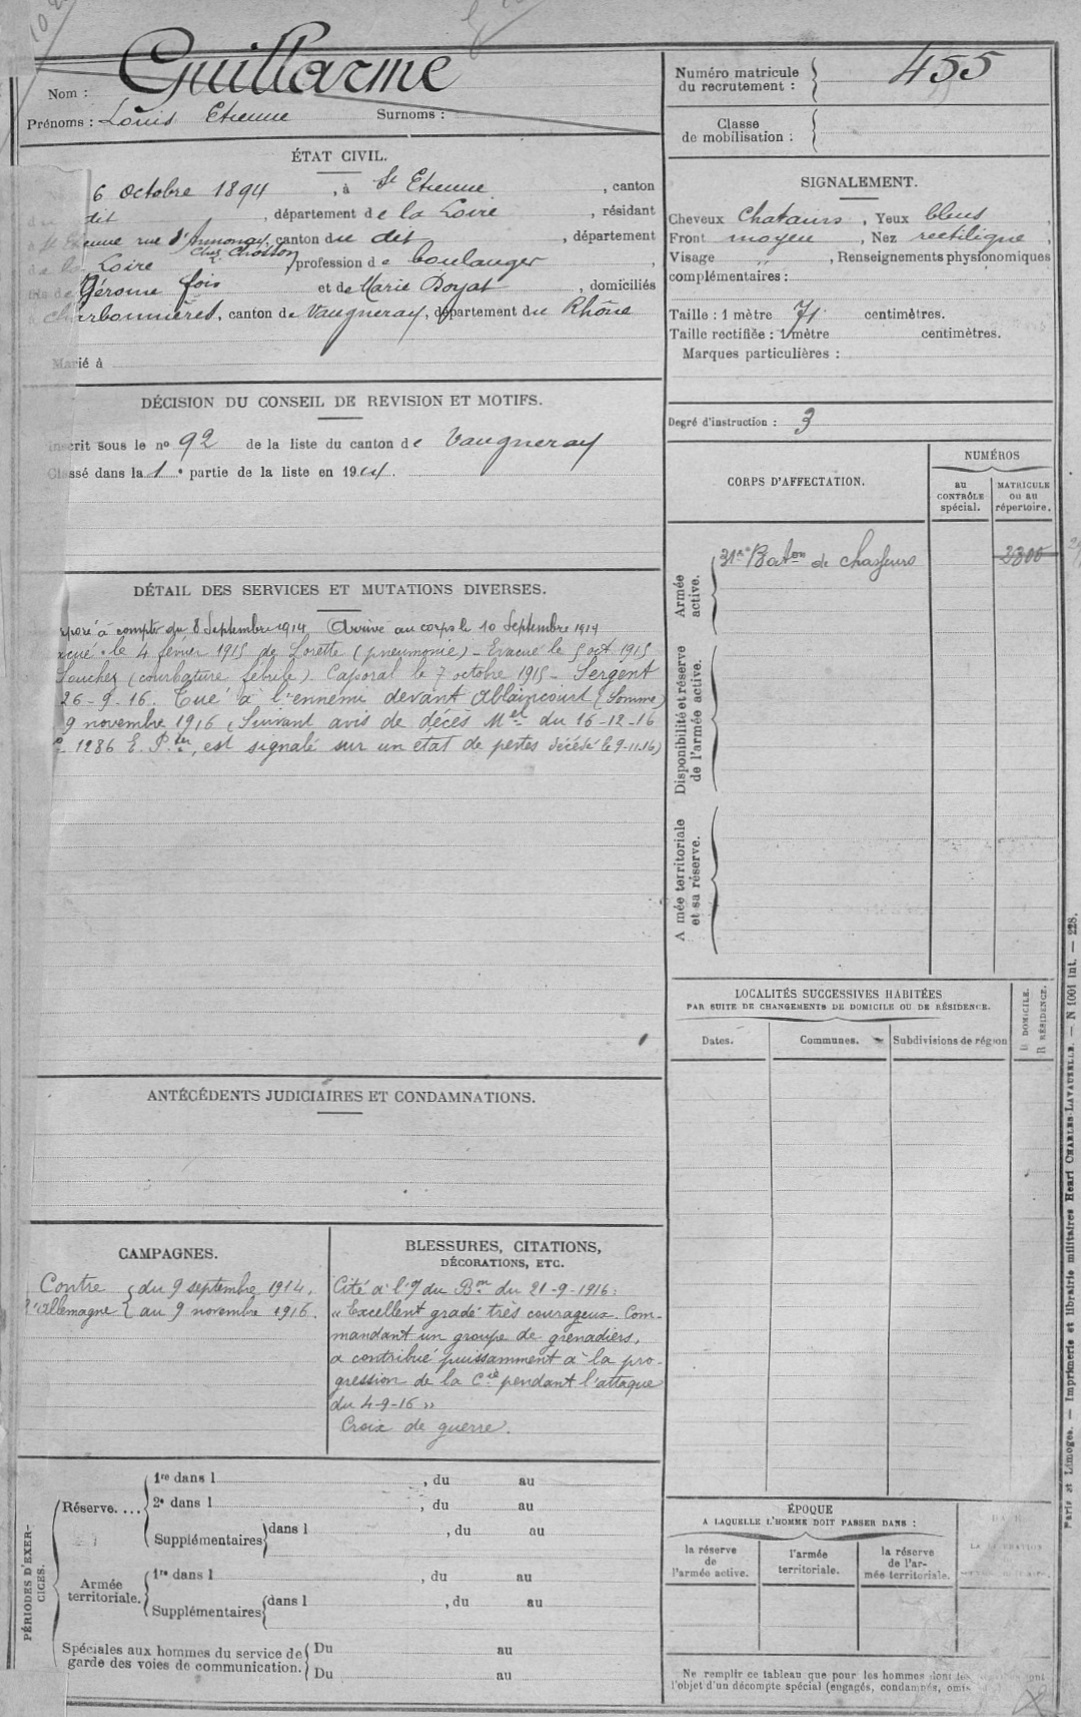 Guillarme
Nom :
Prénoms : Louis Etienne Surnoms :
ÉTAT CIVIL.
6 octobre 1894, à St Etienne, canton
dit, département de la Loire, résidant
à St Etienne rue d'Annonay, canton du dit, département
chez Choiton
de la Loire, profession de boulanger,
fils de Jérome fois et de Marie Doyat, domiciliés
à Charbonnières, canton de Vaugneray, département du Rhône
Marié à
DÉCISION DU CONSEIL DE REVISION ET MOTIFS.
Inscrit sous le no 92 de la liste du canton de Vaugneray
Classé dans la 1e partie de la liste en 1914.
DÉTAIL DES SERVICES ET MUTATIONS DIVERSES.
rporé à compter du 8 Septembre 1914 Arrivé au corps le 10 Septembre 1914
acué le 4 février 1915 de Lorette (pneumonie) – Evacué le 5 oct 1915
Souchez (courbature fébrile). Caporal le 7 octobre 1915 – Sergent
26-9-16. Tué à l'ennemi devant Ablaincourt (Somme)
9 novembre 1916 (Suivant avis de décès Mel du 16-12-16
1286 E. P.ier, est signalé sur un etat de pertes décédé le 9-11-16)
ANTÉCÉDENTS JUDICIAIRES ET CONDAMNATIONS.
CAMPAGNES.
Contre { du 9 septembre 1914.
l'Allemagne { au 9 novembre 1916.
BLESSURES, CITATIONS,
DÉCORATIONS, ETC.
Cité à l'O/ du Bon du 21-9-1916 :
« Excellent gradé très courageux. Com-
mandant un groupe de grenadiers,
a contribué puissamment à la pro-
gression de la Cie pendant l'attaque
du 4-9-16 »
Croix de guerre.
PÉRIODES D'EXER-
CICES.
Réserve. ...
1re dans l , du au
2e dans l , du au
Supplémentaires dans l , du au
Armée
territoriale.
1re dans l , du au
Supplémentaires dans l , du au
Spéciales aux hommes du service de
garde des voies de communication.
Du au
Du au
Numéro matricule
du recrutement :
455
Classe
de mobilisation :
SIGNALEMENT.
Cheveux chatains, Yeux bleus,
Front moyen, Nez rectiligne,
Visage , Renseignements physionomiques
complémentaires :
Taille : 1 mètre 71 centimètres.
Taille rectifiée : 1 mètre centimètres.
Marques particulières :
Degré d'instruction : 3
CORPS D'AFFECTATION.
NUMÉROS
AU
CONTRÔLE
spécial.
MATRICULE
OU AU
répertoire.
Armée
active.
31me Baton de chasseurs
2306
Disponibilité et réserve
de l'armée active.
A mée territoriale
et sa réserve.
LOCALITÉS SUCCESSIVES HABITÉES
PAR SUITE DE CHANGEMENTS DE DOMICILE OU DE RÉSIDENCE.
Dates.
Communes.
Subdivisions de région
D DOMICILE.
R RÉSIDENCE.
ÉPOQUE
A LAQUELLE L'HOMME DOIT PASSER DANS :
la réserve
de
l'armée active.
l'armée
territoriale.
la réserve
de l'ar-
mée territoriale.
Ne remplir ce tableau que pour les hommes dont
l'objet d'un décompte spécial (engagés, condamnés, omis
Paris et Limoges. — Imprimerie et librairie militaires Henri CHARLES-LAVAUZELLE. — N 1001 int. — 228.